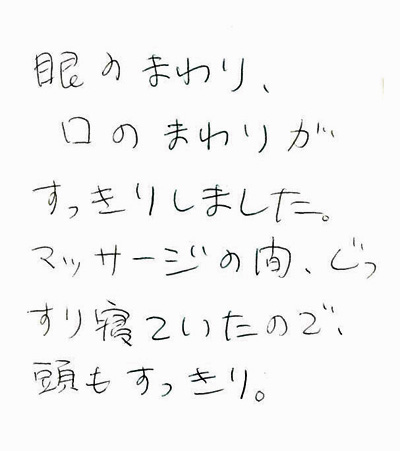 眼のまわり、
口のまわりが
すっきりしました。
マッサージの間、ぐっ
すり寝ていたので、
頭もすっきり。